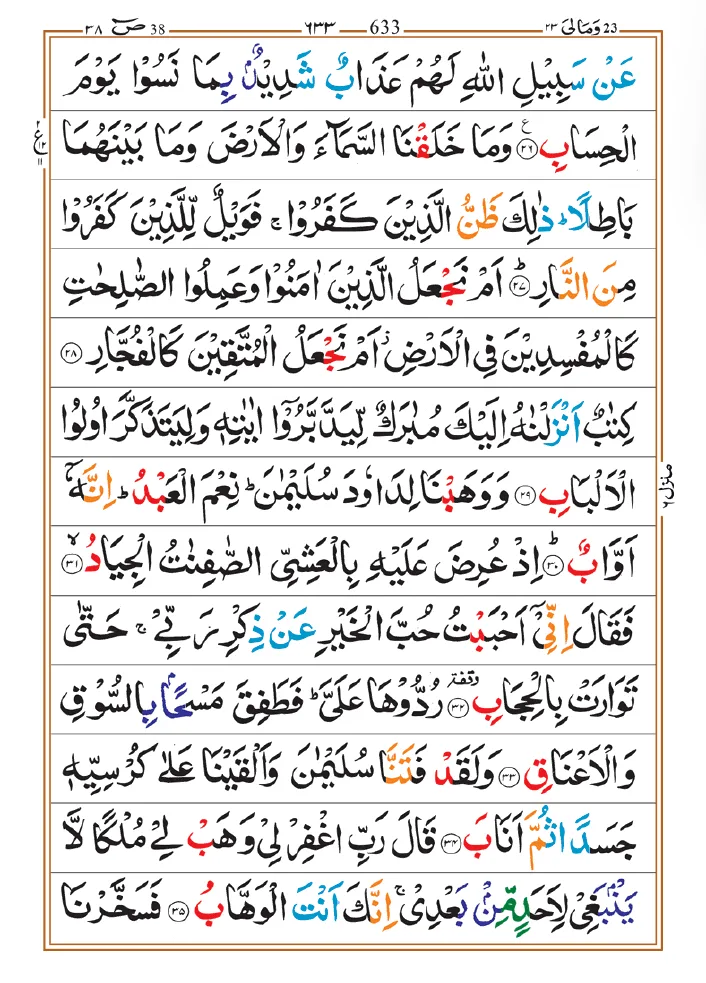 ٣٨ صٓ 38 ٦٣٣ 633 ٢٣ وَمَالِیَ 23
عَنْ سَبِيْلِ اللّٰهِ لَهُمْ عَذَابٌ شَدِيْدٌۢ بِمَا نَسُوْا يَوْمَ
الْحِسَابِ ۝٢٦ ع وَمَا خَلَقْنَا السَّمَآءَ وَالْاَرْضَ وَمَا بَيْنَهُمَا
بَاطِلًا ؕ ذٰلِكَ ظَنُّ الَّذِيْنَ كَفَرُوْا ۚ فَوَيْلٌ لِّلَّذِيْنَ كَفَرُوْا
مِنَ النَّارِ ؕ ۝٢٧ اَمْ نَجْعَلُ الَّذِيْنَ اٰمَنُوْا وَعَمِلُوا الصّٰلِحٰتِ
كَالْمُفْسِدِيْنَ فِي الْاَرْضِ ؗ اَمْ نَجْعَلُ الْمُتَّقِيْنَ كَالْفُجَّارِ ۝٢٨
كِتٰبٌ اَنْزَلْنٰهُ اِلَيْكَ مُبٰرَكٌ لِّيَدَّبَّرُوْۤا اٰيٰتِهٖ وَلِيَتَذَكَّرَ اُولُوا
الْاَلْبَابِ ۝٢٩ وَوَهَبْنَا لِدَاوٗدَ سُلَيْمٰنَ ؕ نِعْمَ الْعَبْدُ ؕ اِنَّهٗۤ
اَوَّابٌ ؕ ۝٣٠ اِذْ عُرِضَ عَلَيْهِ بِالْعَشِيِّ الصّٰفِنٰتُ الْجِيَادُ ۙ ۝٣١
فَقَالَ اِنِّيْۤ اَحْبَبْتُ حُبَّ الْخَيْرِ عَنْ ذِكْرِ رَبِّيْ ۚ حَتّٰى
تَوَارَتْ بِالْحِجَابِ ۝٣٢ وقفة رُدُّوْهَا عَلَيَّ ؕ فَطَفِقَ مَسْحًۢا بِالسُّوْقِ
وَالْاَعْنَاقِ ۝٣٣ وَلَقَدْ فَتَنَّا سُلَيْمٰنَ وَاَلْقَيْنَا عَلٰى كُرْسِيِّهٖ
جَسَدًا ثُمَّ اَنَابَ ۝٣٤ قَالَ رَبِّ اغْفِرْ لِيْ وَهَبْ لِيْ مُلْكًا لَّا
يَنْۢبَغِيْ لِاَحَدٍ مِّنْۢ بَعْدِيْ ۚ اِنَّكَ اَنْتَ الْوَهَّابُ ۝٣٥ فَسَخَّرْنَا
٢ ع ١٢ ١١
منزل ٦